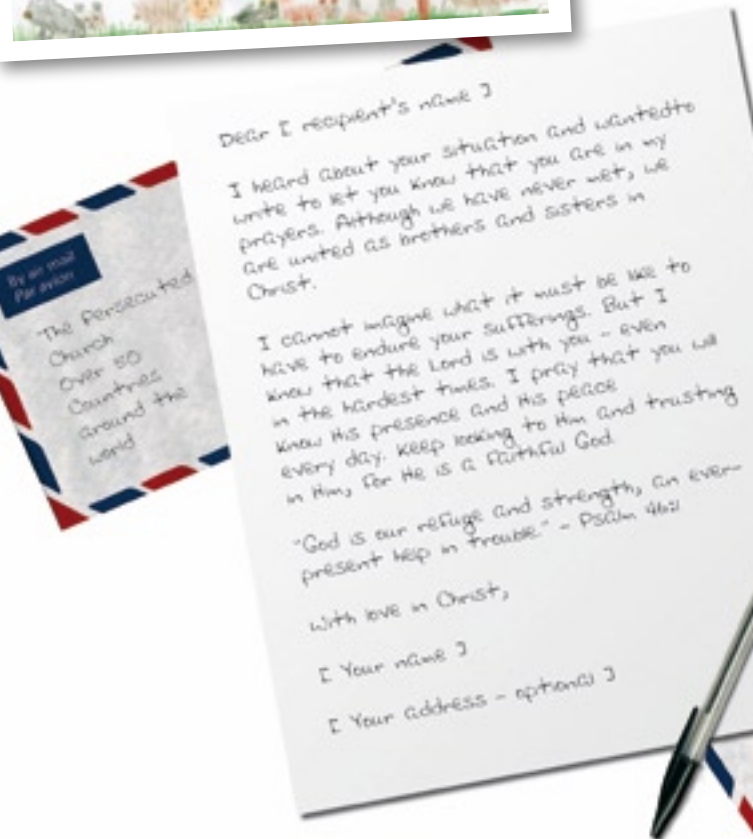 By air mail
Par avion
The Persecuted
Church
Over 50
Countries
around the
world
Dear [ recipient's name ]
I heard about your situation and wantedto
write to let you know that you are in my
prayers. Although we have never met, we
are united as brothers and sisters in
Christ.
I cannot imagine what it must be like to
have to endure your sufferings. But I
know that the Lord is with you - even
in the hardest times. I pray that you will
know His presence and His peace
every day. Keep looking to Him and trusting
in Him, for He is a faithful God.
"God is our refuge and strength, an ever-
present help in trouble." - Psalm 46:1
With love in Christ,
[ Your name ]
[ Your address - optional ]